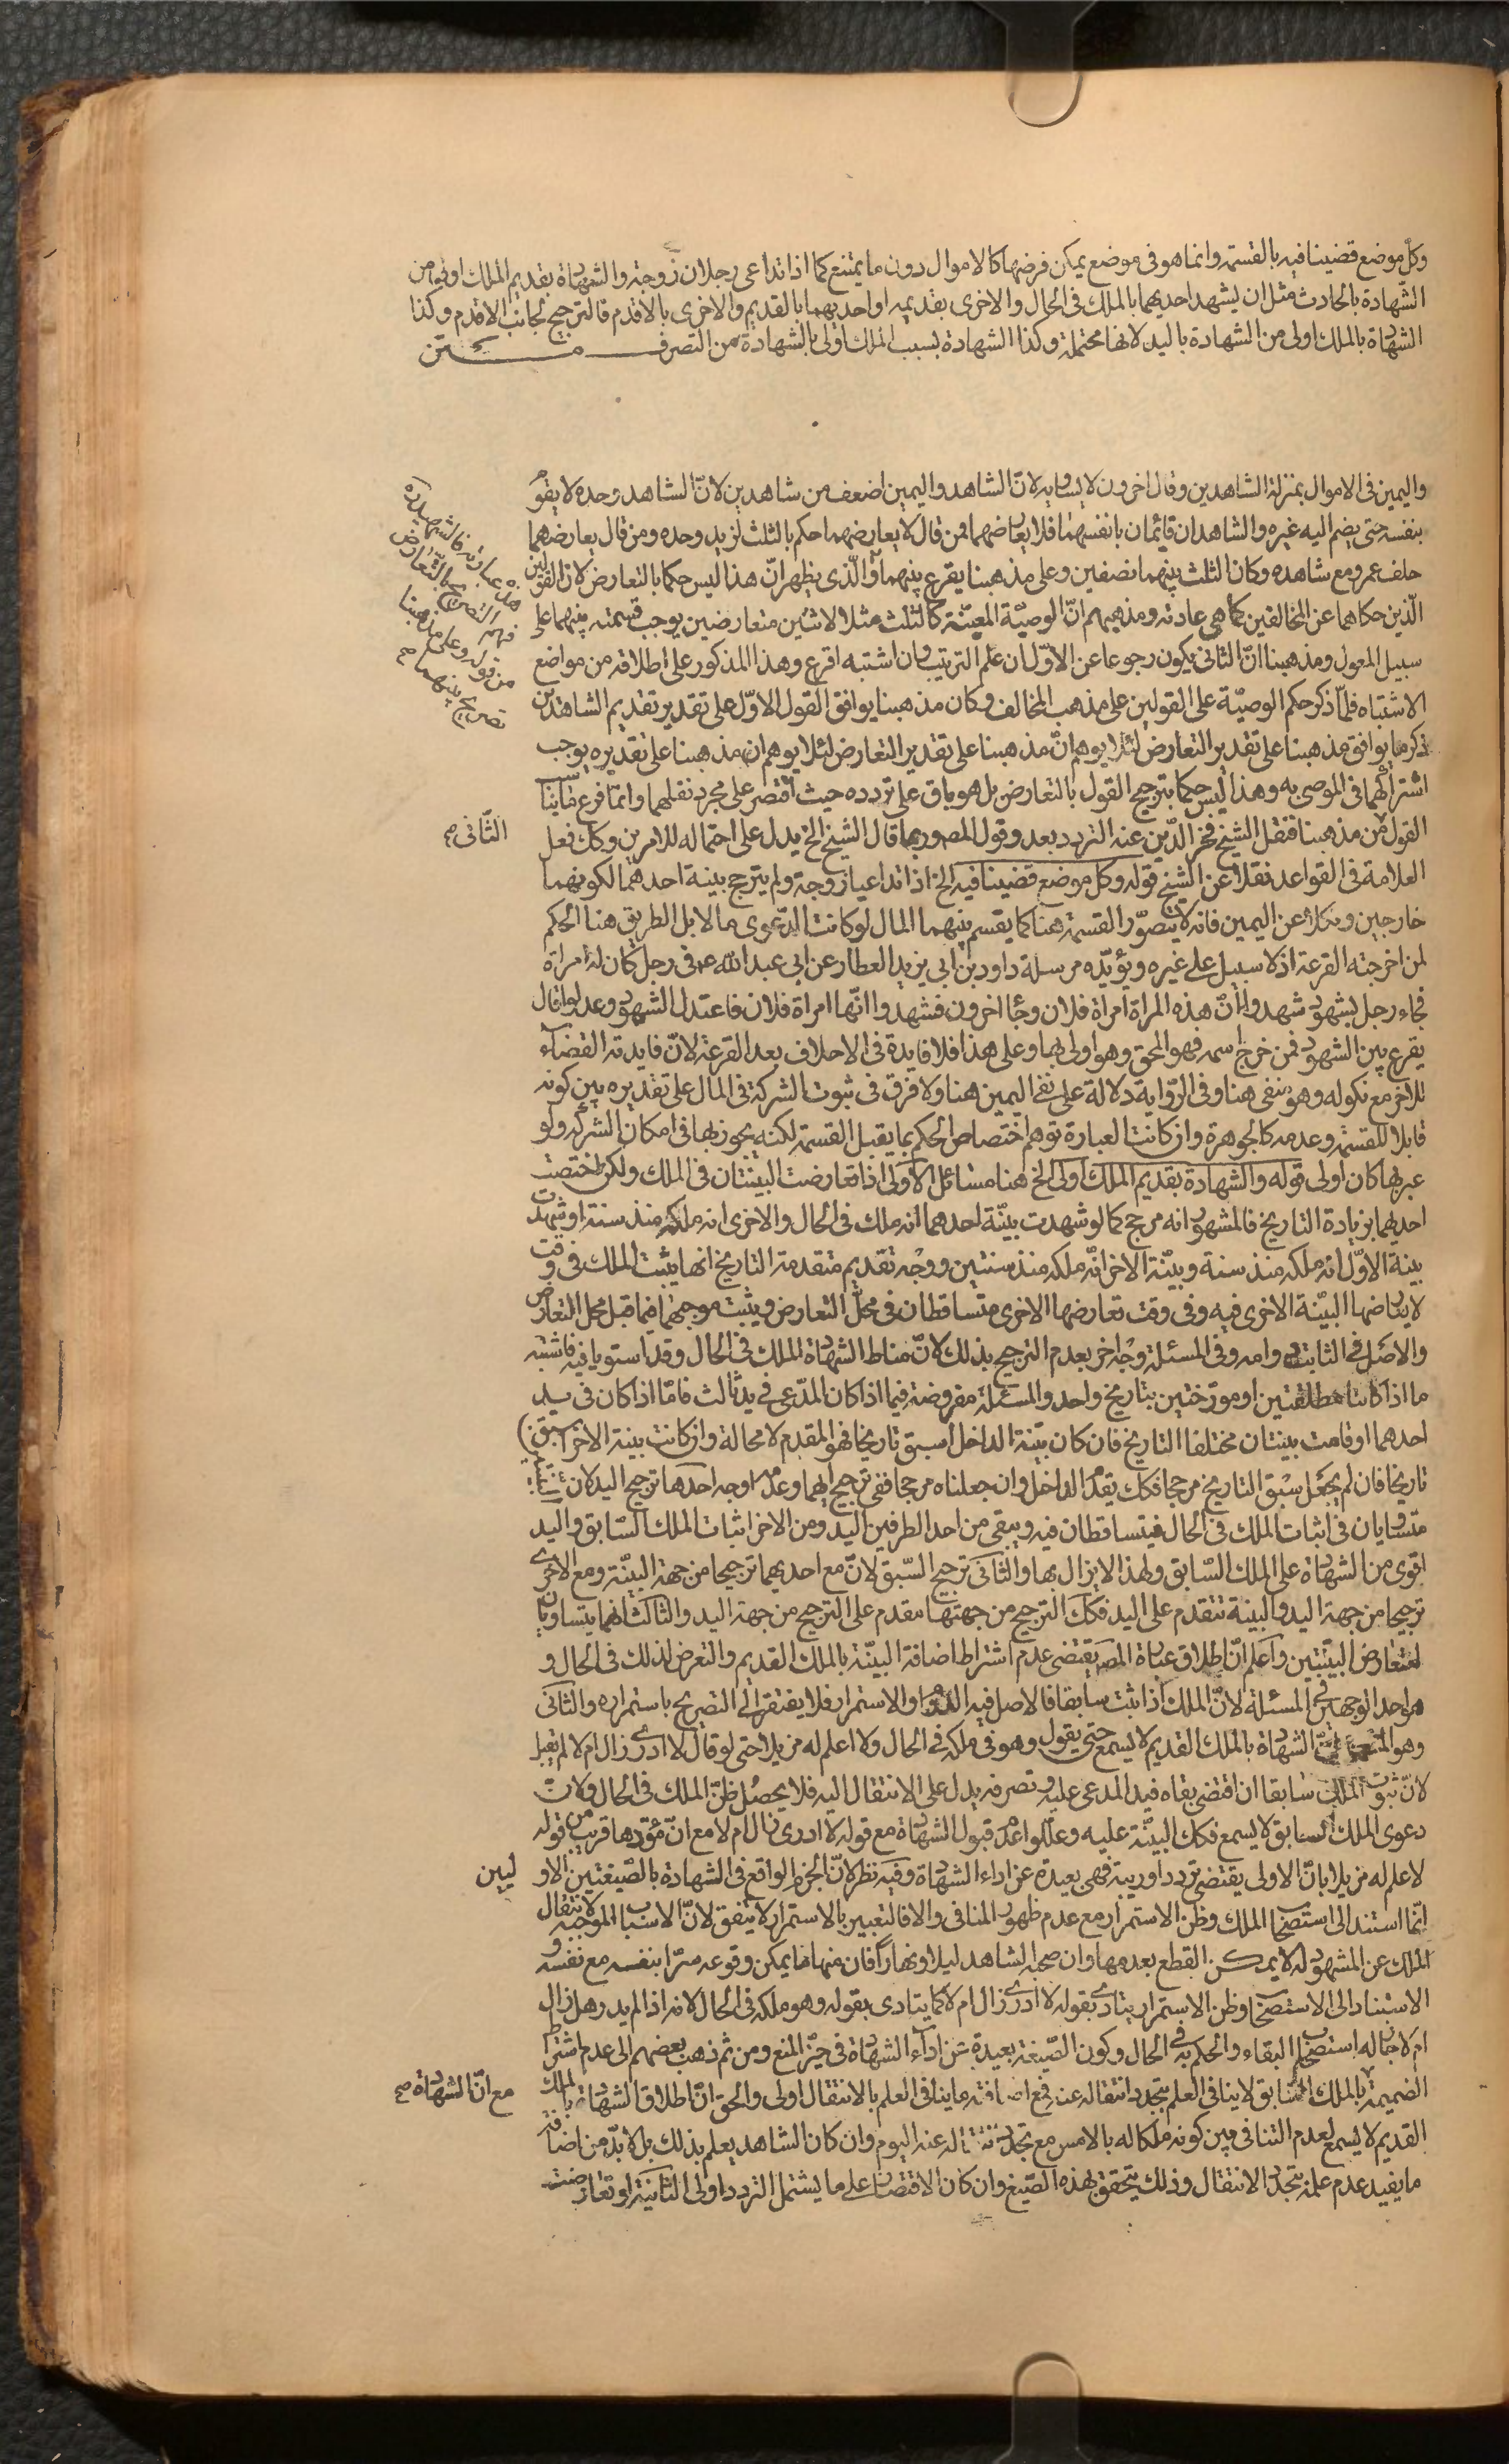 وكل موضع قضينا فيه بالقسمة وانما هو فى موضع يمكن فرضها كالاموال دون ما يمتنع كما اذا تداعى رجلان زوجة والشهادة بقديم الملك اولى من
الشهادة بالحادث مثل ان يشهد احديهما بالملك فى الحال والاخرى بقديمه او احديهما بالقديم والاخرى بالاقدم فالترجيح لجانب الاقدم وكذا
الشهادة بالملك اولى من الشهادة باليد لانها محتملة وكذا الشهادة بسبب الملك اولى بالشهادة من التصرف
واليمين فى الاموال بمنزلة الشاهدين وقال اخرون لا يساويه لانّ الشاهد واليمين اضعف من شاهدين لانّ الشاهد وحده لا يقوم
بنفسه حتى يضم اليه غيره والشاهدان قائمان بانفسهما فلا يعارضهما فمن قال لا يعارضهما حكم بالثلث لزيد وحده ومن قال يعارضهما
حلف عمرو مع شاهده وكان الثلث بينهما نصفين وعلى مذهبنا يقرع بينهما والّذى يظهر انّ هذا ليس حكما بالتعارض لان القولين
الّذين حكاهما عن المخالفين كما هى عادته ومذهبهم انّ الوصيّة المعيّنة كالثلث مثلا لاثنين متعارضين يوجب قسمته بينهما على
سبيل العول ومذهبنا انّ الثانى يكون رجوعا عن الاوّل ان علم الترتيب وان اشتبه اقرع وهذا المذكور على اطلاقه من مواضع
الاشتباه فلمّا ذكر حكم الوصيّة على القولين على مذهب المخالف وكان مذهبنا يوافق القول الاوّل على تقدير تقديم الشاهدين
ذكر ما يوافق مذهبنا على تقدير التعارض لئلا يوهم انّ مذهبنا على تقدير التعارض لئلا يوهم ان مذهبنا على تقديره يوجب
اشتراكهما فى الموصى به وهذا ليس حكما بترجيح القول بالتعارض بل هو باق على تردده حيث اقتصر على مجرد نقلهما وانما فرع ما يناسب
القول من مذهبنا فنقل الشيخ فخر الدّين عنه التردد بعد وقول المصور بما قال الشيخ الخ يدل على احتماله للامرين وكك فعل
العلامة فى القواعد نقلا عن الشيخ قوله وكل موضع قضينا فيه الخ اذا تداعيا زوجة ولم يترجح بينة احدهما لكونهما
خارجين ونكلا عن اليمين فانه لا يتصوّر القسمة هنا كما يقسم بينهما المال لو كانت الدعوى مالا بل الطريق هنا الحكم
لمن اخرجته القرعة اذ لا سبيل على غيره ويؤيّده مرسلة داود بن ابى يزيد العطار عن ابى عبد الله ع فى رجل كان له امراة
فجاء رجل بشهود شهدوا انّ هذه المراة امراة فلان وجاا اخرون فشهدوا انّها امراة فلان فاعتدل الشهود وعدلوا قال
يقرع بين الشهود فمن خرج اسمه فهو المحق وهو اولى بها وعلى هذا فلا فايدة فى الاحلاف بعد القرعة لانّ فايدته القضآء
للاخر مع نكوله وهو منفى هنا وفى الرّواية دلالة على نفى اليمين هنا ولا فرق فى ثبوت الشركة فى المال على تقديره بين كونه
قابلا للقسمة وعدمه كالجوهرة وان كانت العبارة توهم اختصاص الحكم بما يقبل القسمة لكنه يجوز بها فى امكان الشركه ولو
عبر بها كان اولى قوله والشهادة بقديم الملك اولى الخ هنا مسائل الاولى اذا تعارضت البينتان فى الملك ولكن اختصت
احديهما بزيادة التاريخ فالمشهور انه مرجح كما لو شهدت بينّة احدهما انه ملك فى الحال والاخرى انه ملكه منذ سنة او شهدت
بينة الاوّل انه ملكه منذ سنة وبيّنة الاخر انّه ملكه منذ سنتين ووجه تقديم متقدمة التاريخ انها يثبت الملك فى وقت
لا يعارضها البيّنة الاخرى فيه وفى وقت تعارضها الاخرى متساقطان فى محلّ التعارض ويثبت موجبهما فيما قبل محل التعارض
والاصل فى الثابت دوامه وفى المسئلة وجه اخر بعدم الترجيح بذلك لانّ مناط الشهادة الملك فى الحال وقد استويا فيه فاشبه
ما اذا كانتا مطلقتين او مورّختين بتاريخ واحد والمسئلة مفروضة فيما اذا كان المدّعى فى يد ثالث فامّا اذا كان فى يد
احدهما او قامت بينتان مختلفا التاريخ فان كان بيّنة الداخل اسبق تاريخا فهو المقدم لا محالة وان كانت بينة الاخر اسبق
تاريخا فان لم يجعل سبق التاريخ مرجحا فكك يقدّم الداخل وان جعلناه مرجحا ففى ترجيح ايهما وعدمه اوجه احدها ترجيح اليد لان
متساويان فى اثبات الملك فى الحال فيتساقطان فيه ويبقى من احد الطرفين اليد ومن الاخر اثبات الملك السّابق واليد
اقوى من الشهادة على الملك السّابق ولهذا لا يزال بها والثانى ترجيح السّبق لانّ مع احديهما ترجيحا من جهة البيّنة ومع الاخرى
ترجيحا من جهة اليد والبينة تتقدم على اليد فكك الترجيح من جهتها مقدم على الترجيح من جهة اليد والثالث انهما يتساويان
لتعارض البيّنتين واعلم انّ اطلاق عبارة المصـ يقتضى عدم اشتراط اضافة البيّنة بالملك القديم والتعرض لذلك فى الحال و
هو احد الوجهين فى المسئلة لانّ الملك اذا ثبت سابقا فالاصل فيه الدوام والاستمرار فلا يفتقر الى التصريح باستمراره والثانى
وهو المشهور انّ الشهادة بالملك القديم لا يسمع حتى يقول وهو فى ملكه فى الحال ولا اعلم له مزيلا حتى لو قال لا ادرى زال ام لا لم يقبل
لانّ ثبوت الملك سابقا ان اقتضى بقاه فيد المدعى عليه وتصرفه يدل على الانتقال اليه فلا يحصل ظنّ الملك فى الحال ولان
دعوى الملك السابق لا يسمع فكك البيّنة عليه وعلّلوا عدم قبول الشهادة مع قوله لا ادرى زال ام لا مع انّ مؤدها قريب من قوله
لا علم له مزيلا بانّ الاولى يقتضى تردد اوريبة فهى بعيدة عن اداء الشهادة وفيه نظر لانّ الجزم الواقع فى الشهادة بالصّيغتين الاو ليين
انّما استند الى استصحاب الملك وظن الاستمرار مع عدم ظهور المنافى والا فالتعبير بالاستمرار لا يتفق لانّ الاسباب الموجبة لانتقال
الملك عن المشهود له لا يمكن القطع بعدمها وان صحبه الشاهد ليلا ونهارا فان منها ما يمكن وقوعه سرّا بنفسه مع نفسه و
الاستناد الى الاستصحاب وظن الاستمرار يتادى بقوله لا ادرى زال ام لا كما يتادى بقوله وهو ملكه فى الحال لانه اذا لم يدر هل زال
ام لا جاز له استصحاب البقاء والحكم به فى الحال وكون الصّيغة بعيدة عن ادآء الشهادة فى حيّز المنع ومن ثم ذهب بعضهم الى عدم اشتراط
الضميمة بالملك السّابق لا ينافى العلم بتجدد انتقاله عنه فمع اضافته ما ينافى العلم بالانتقال اولى والحق انّ اطلاق الشهادة بالملك
القديم لا يسمع لعدم التنافى بين كونه ملكا له بالامس مع تجدد انتقاله عنه اليوم وان كان الشاهد يعلم بذلك بل لا بدّ من اضافة
ما يفيد عدم علمه بتجدد الانتقال وذلك يتحقق بهذه الصّيغ وان كان الاقتصار على ما يشتمل التردد اولى الثانية لو تعارضت
هذه عبارته فالشهيد ره
فهم التصريح بالتّعارض
من قوله وعلى مذهبنا
تصريح بينهما صح
الثّانى صح
مع انّ الشهادة صح